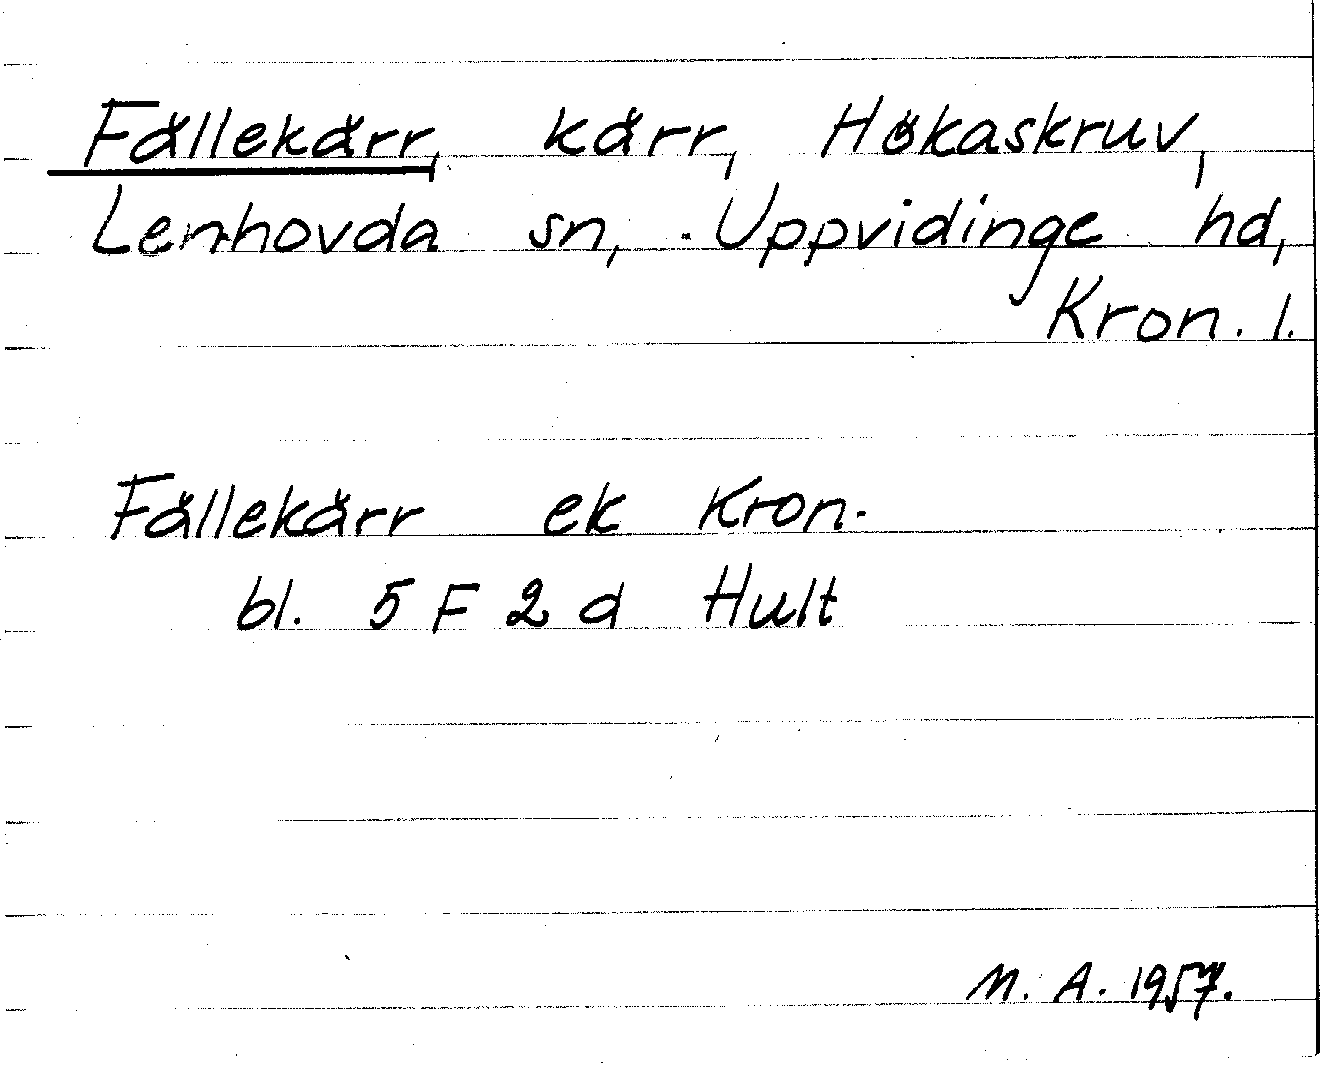 Fällekärr, kärr, Hökaskruv,
Lenhovda sn, Uppvidinge hd,
Kron. l.
Fällekärr ek Kron.
bl. 5 F 2 d Hult
M. A. 1957.